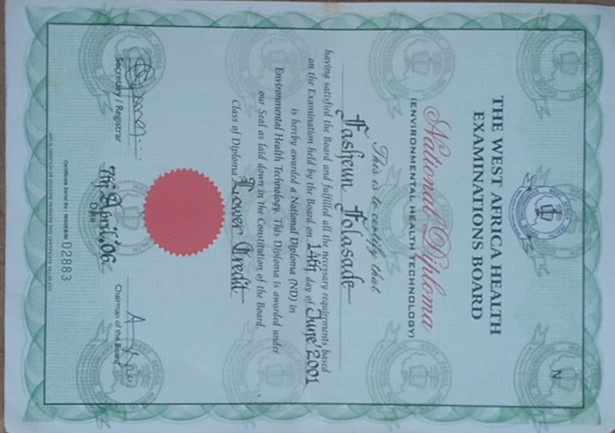 N
THE WEST AFRICA HEALTH
EXAMINATIONS BOARD
National Diploma
(ENVIRONMENTAL HEALTH TECHNOLOGY)
This is to certify that
Fasheun Folasade
having satisfied the Board and fulfilled all the necessary requirements based
on the Examination held by the Board on 14th day of June' 2001
is hereby awarded a National Diploma (ND) in
Environmental Health Technology. This Diploma is awarded under
our Seal as laid down in the Constitution of the Board.
Class of Diploma Lower Credit
Secretary / Registrar
7th April, '06
Date
Chairman of the Board
02883